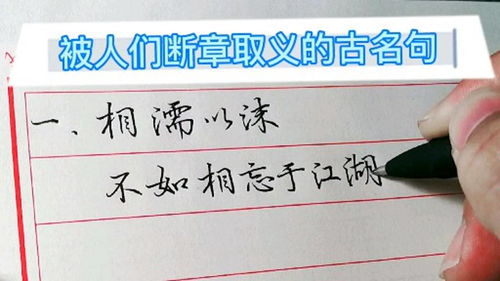 被人们断章取义的古名句
一、相濡以沫
不如相忘于江湖